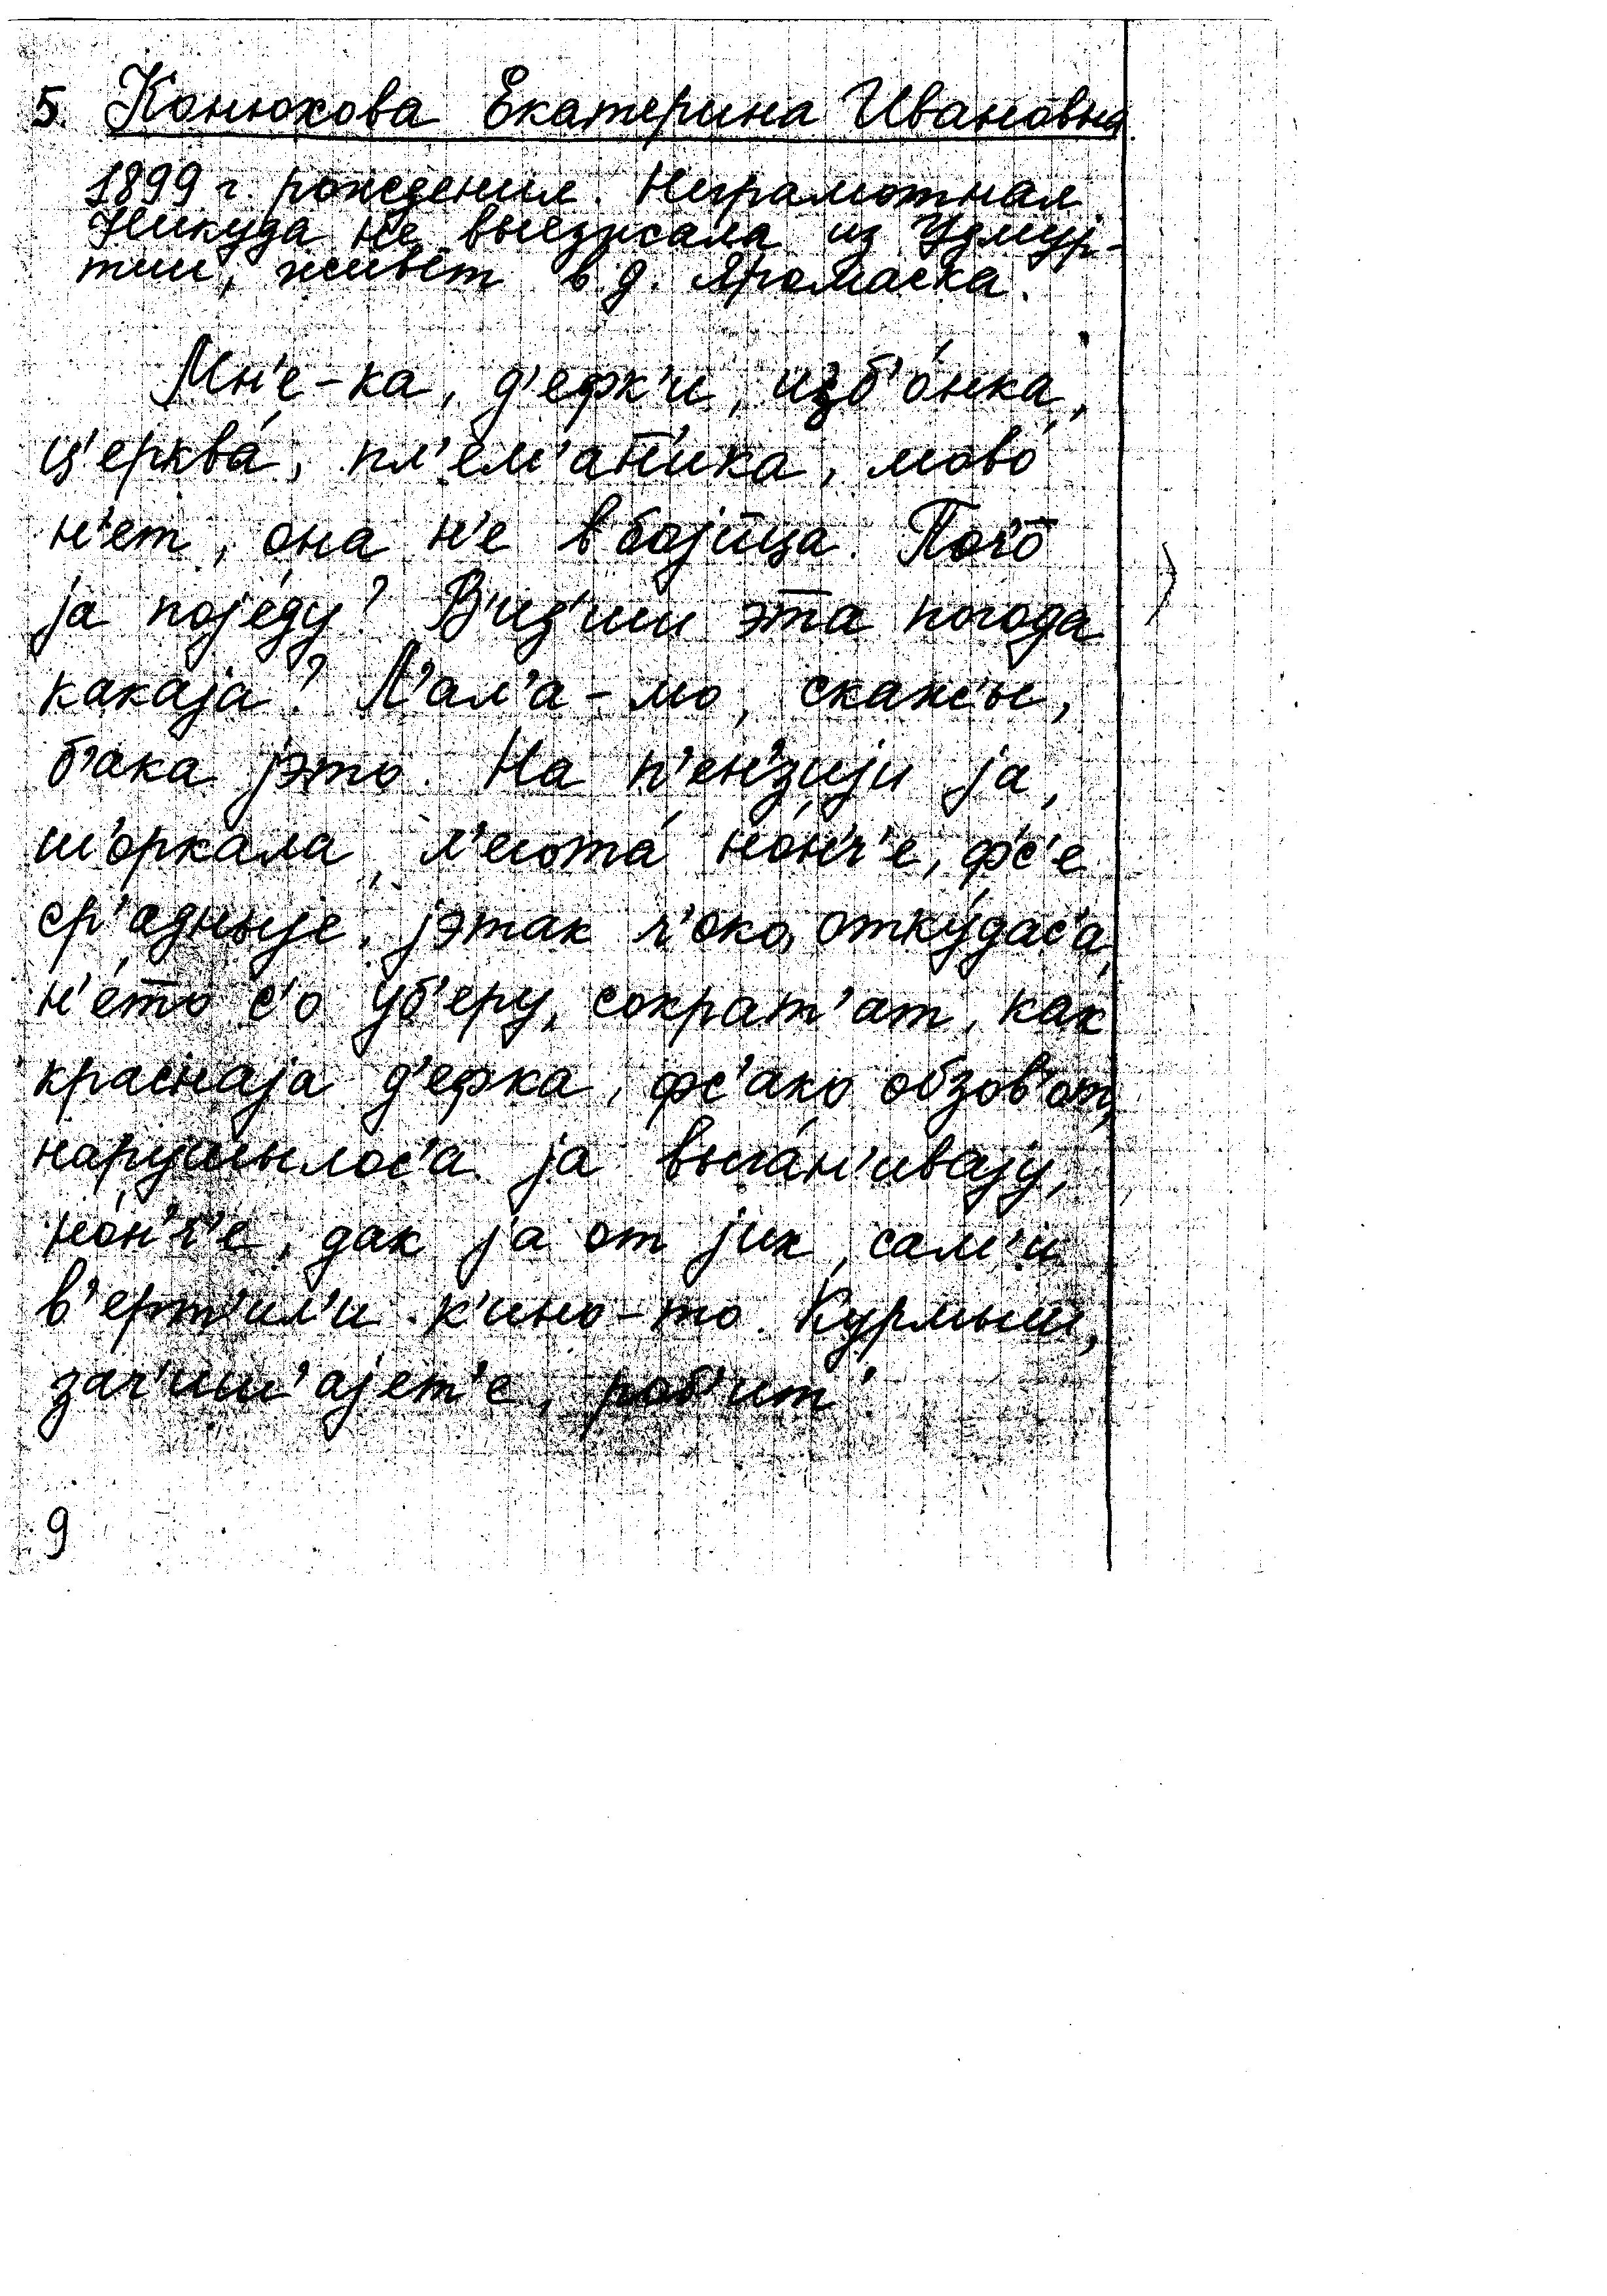 5. Конюхова Екатерина Ивановна
1899 г. рождения. Неграмотная
Никуда не выезжала из Удмур-
тии, живёт в д. Яромаска.
Мн'е-ка, д'ефк'и, изб'о́нка,
ц'ерква́, пл'ем'ан'ика, мово́
н'ет, она н'е вбојица. Поч'о
ја поје́ду? В'ид'иш эта погода
какаја? Л'ал'а-мо, скаж'ы,
б'ака јэто. На п'ен'з'иji ја,
ш'оркала, л'егота́ но́н'ч'е, ф'с'е
ср'адныjе, јэтак ч'око, отку́дас'а,
н'е́што с'о уб'еру, сократ'ат, как
краснаја д'ефка, фс'ако обзов'от,
нарушылос'а ја выга́н'иваjу,
но́н'ч'е, дак ја от jих, сам'и
в'ерт'ил'и к'ино-то. Курмыш,
зач'иш'аjет'е, роб'ит'.
9